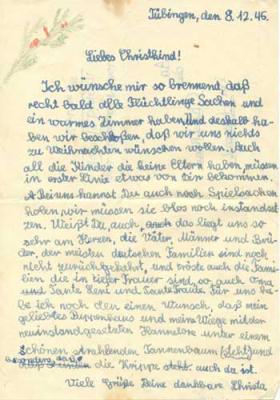 Tübingen, den 8.12.46.
Liebes Christkind!
Ich wünsche mir so brennend, daß
recht bald alle Flüchtlinge Sachen und
ein warmes Zimmer haben. Und deshalb ha-
ben wir beschloßen, daß wir uns nichts
zu Weihnachten wünschen wollen. Auch
all die Kinder die keine Eltern haben, müssen
in erster Linie etwas von Dir bekommen.
Bei uns kannst Du auch noch Spielsachen
holen wir müssen sie blos noch instandset-
zen. Weißt Du, auch, das liegt uns so
sehr am Herzen, die Väter, Männer und Brü-
der, der meisten deutschen Familien sind noch
nicht zurückgekehrt, und tröste auch die Fami-
lien die in tiefer Trauer sind, so, auch Oma
und Tante Heni und Tante Traude. Für uns ha-
be ich noch den einen Wunsch, daß mein
geliebtes Puppenhaus und meine Wiege mit der
neuinstandgesetzten Hannelore unter einem
Schönen strahlenden Tannenbaum (steht) und
daß die Krippe steht. auch da ist.
Viele Grüße Deine dankbare Christa